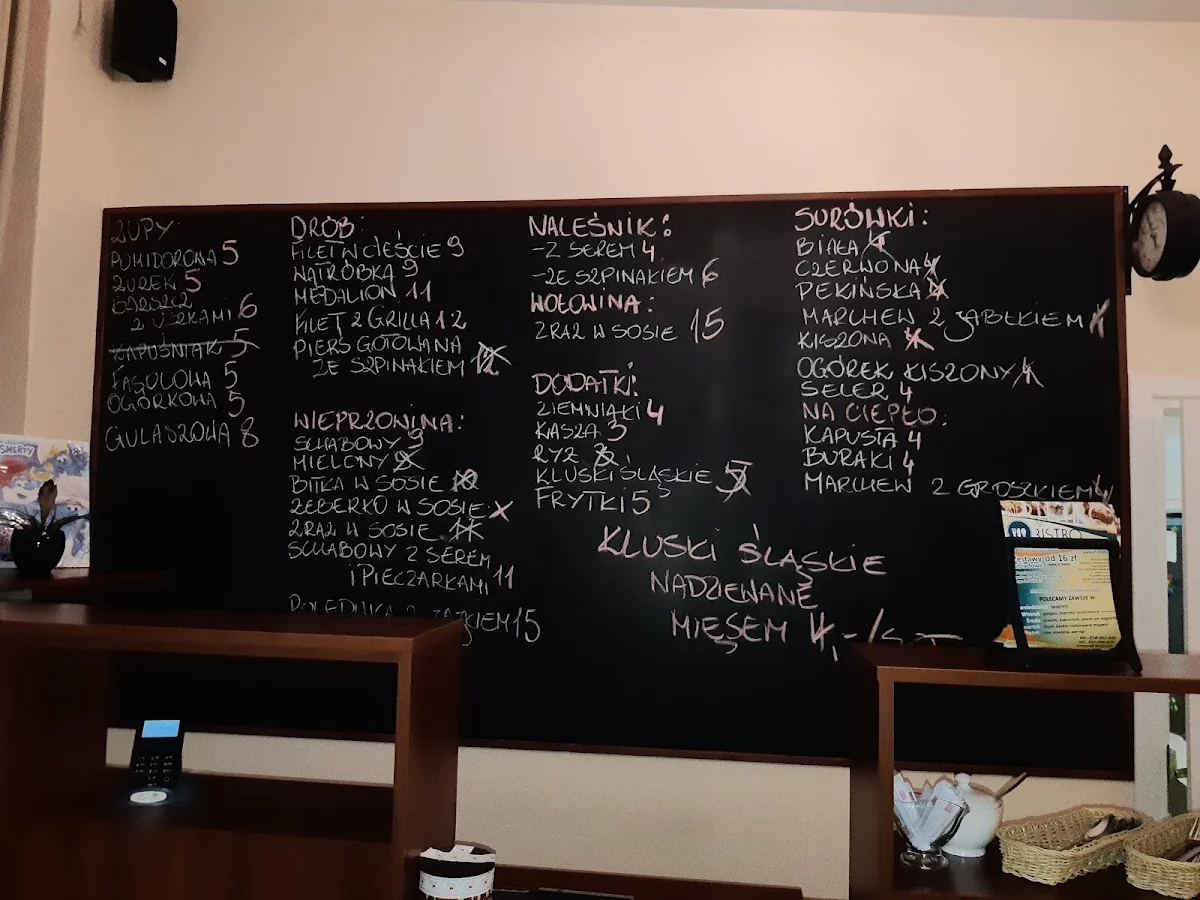 ZUPY:
POMIDOROWA 5
ŻUREK 5
BARSZCZ
Z USZKAMI 6
KAPUŚNIAK 5
FASOLOWA 5
OGÓRKOWA 5
GULASZOWA 8
DRÓB:
FILET W CIEŚCIE 9
WĄTRÓBKA 9
MEDALION 11
FILET Z GRILLA 12
PIERŚ GOTOWANA
ZE SZPINAKIEM 12
WIEPRZOWINA:
SCHABOWY 9
MIELONY
BITKA W SOSIE 10
ŻEBERKO W SOSIE
ZRAZ W SOSIE
SCHABOWY Z SEREM
I PIECZARKAMI 11
15
NALEŚNIK:
-Z SEREM 4
-ZE SZPINAKIEM 6
WOŁOWINA:
ZRAZ W SOSIE 15
DODATKI:
ZIEMNIAKI 4
KASZA 3
RYŻ 3
KLUSKI ŚLĄSKIE 5
FRYTKI 5
KLUSKI ŚLĄSKIE
NADZIEWANE
MIĘSEM
SURÓWKI:
BIAŁA 4
CZERWONA 4
PEKIŃSKA 4
MARCHEW Z JABŁKIEM
KISZONA
OGÓREK KISZONY
SELER 4
NA CIEPŁO:
KAPUSTA 4
BURAKI 4
MARCHEW Z GROSZKIEM 4
SMERFY
BISTRO
Zestawy od 16 zł
POLECAMY ZAWSZE W: